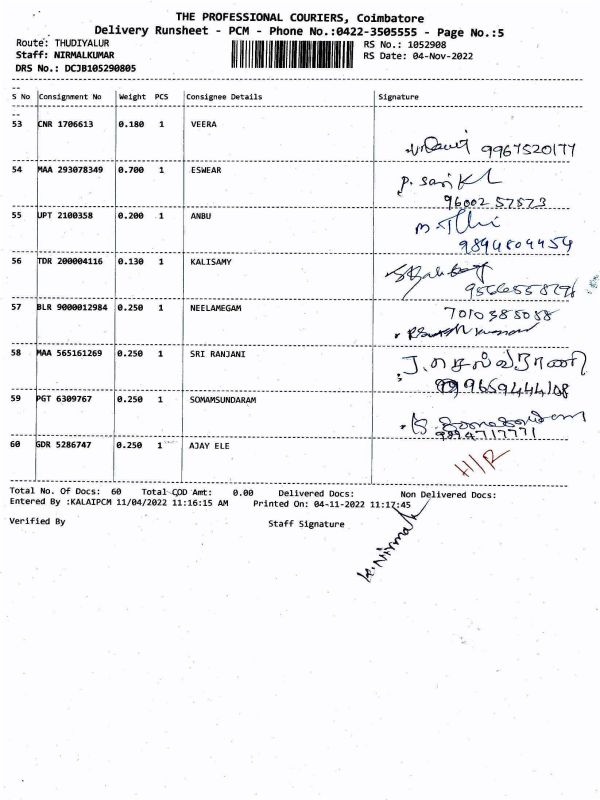 THE PROFESSIONAL COURIERS, Coimbatore
Delivery Runsheet - PCM - Phone No.:0422-3505555 - Page No.:5
Route: THUDIYALUR
RS No.: 1052908
Staff: NIRMALKUMAR
RS Date: 04-Nov-2022
DRS No.: DCJB105290805
S No Consignment No Weight PCS Consignee Details Signature
53 CNR 1706613 0.180 1 VEERA
9967520177
54 MAA 293078349 0.700 1 ESWEAR
9600257573
55 UPT 2100358 0.200 1 ANBU
9894804454
56 TDR 200004116 0.130 1 KALISAMY
57 BLR 9000012984 0.250 1 NEELAMEGAM
7010385058
58 MAA 565161269 0.250 1 SRI RANJANI
J. செல்வராணி
9659444108
59 PGT 6309767 0.250 1 SOMAMSUNDARAM
9894717771
60 GDR 5286747 0.250 1 AJAY ELE
H/R
Total No. Of Docs: 60 Total COD Amt: 0.00 Delivered Docs: Non Delivered Docs:
Entered By :KALAIPCM 11/04/2022 11:16:15 AM Printed On: 04-11-2022 11:17:45
Verified By Staff Signature
K. Nirmal